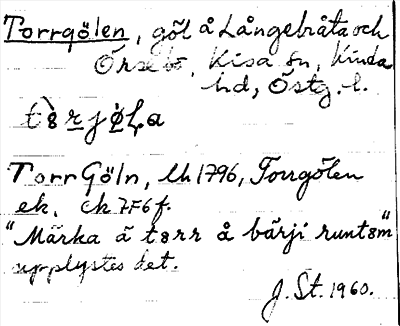 Torrgölen, göl å Långebråta och
Örsebo, Kisa sn, Kinda
hd, Östg. l.
tòrjøLa
Torr Göln, lh 1796, Torrgölen
ek. ck 7F6f.
"Märka ä torr å bärji runtom"
upplystes det.
J. St. 1960.